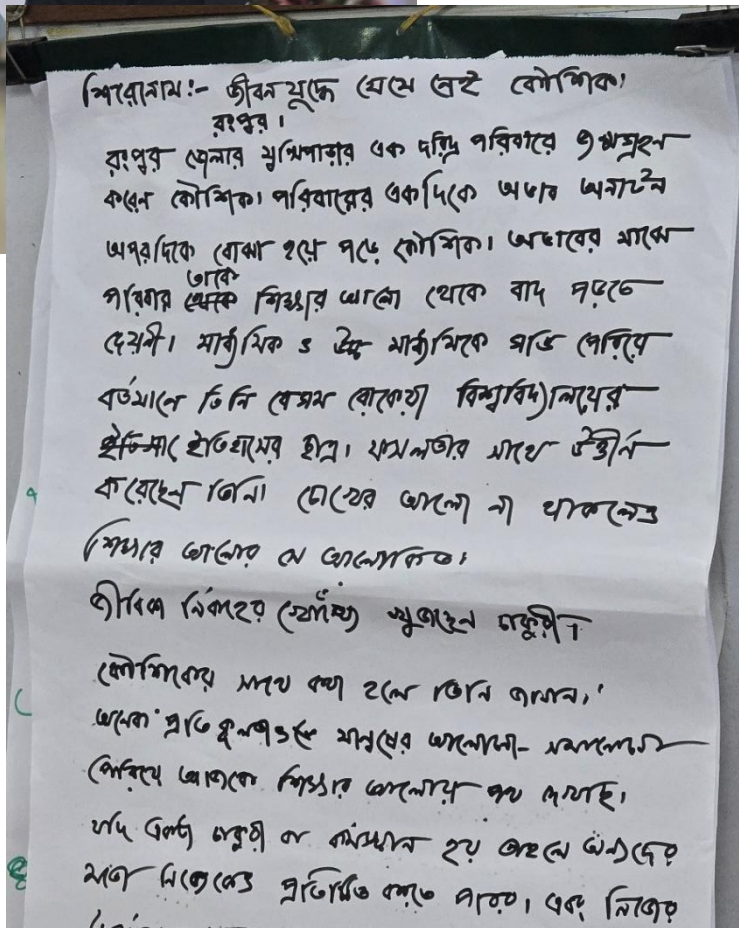 শিরোনাম:- জীবন যুদ্ধে থেমে নেই কৌশিক।
রংপুর।
রংপুর জেলার মুন্সিপাড়ার এক দরিদ্র পরিবারে জন্মগ্রহন
করেন কৌশিক। পরিবারের একদিকে অভাব অনাটন
অপরদিকে বোঝা হয়ে পড়ে কৌশিক। অভাবের মাঝে
তাকে
পরিবার থেকে শিক্ষার আলো থেকে বাদ পড়তে
দেয়নী। মাধ্যমিক ও উচ্চ মাধ্যমিকে গন্ডি পেরিয়ে
বর্তমানে তিনি বেগম রোকেয়া বিশ্ববিদ্যালয়ের
ইতিহাসের ছাত্র। সফলতার সাথে উত্তীর্ন
করেছেন তিনি। চোখের আলো না থাকলেও
শিক্ষার আলোর সে আলোকিত।
জীবিকা নির্বাহের খুজছেন চাকুরী।
কৌশিকের সাথে কথা হলে তিনি জানান,
অনেক প্রতিকূলতা মানুষের আলোচনা- সমালোচনা
পেরিয়ে আজকে শিক্ষার আলোয় পথ দেখছি।
যদি একটা চাকুরী বা কর্মসংস্থান হয় তাহলে অন্যদের
মতো নিজেকেও প্রতিষ্ঠিত করতে পারব। এবং নিজের